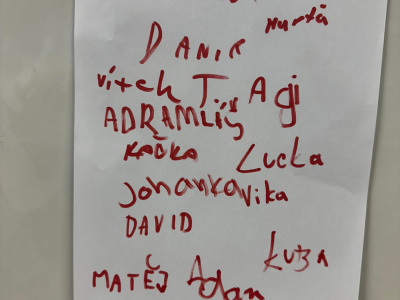 Murtá
DANIR
vítek T. Agi
ADRAMLIŠ
KAČKA Lucka
Johanka Vika
DAVID
kuba
MATĚJ Adam